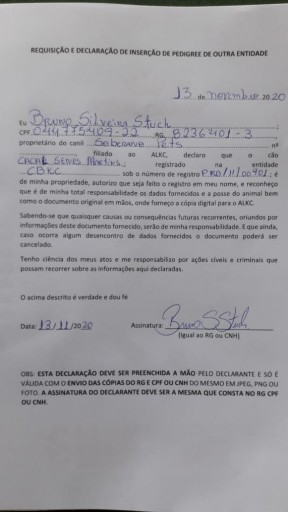 REQUISIÇÃO E DECLARAÇÃO DE INSERÇÃO DE PEDIGREE DE OUTRA ENTIDADE
13 de novembro 2020
Eu Bruno Silveira Stuch
CPF 044775409-22 RG 8236401-3
proprietário do canil Soberano Pets nº
filiado ao ALKC, declaro que o cão
registrado na entidade
CBKC sob o número de registro ; é
de minha propriedade, autorizo que seja feito o registro em meu nome, e reconheço
que é de minha total responsabilidade os dados fornecidos e a posse do animal bem
como o documento original em mãos, onde forneço a cópia digital para o ALKC.
Sabendo-se que quaisquer causas ou consequências futuras recorrentes, oriundos por
informações deste documento fornecido, serão de minha responsabilidade. E que ainda,
caso ocorra algum desencontro de dados fornecidos o documento poderá ser
cancelado.
Tenho ciência dos meus atos e me responsabilizo por ações cíveis e criminais que
possam recorrer sobre as informações aqui declaradas.
O acima descrito é verdade e dou fé
Data: 13/11/2020 Assinatura: Bruno S Stuch
(Igual ao RG ou CNH)
OBS: ESTA DECLARAÇÃO DEVE SER PREENCHIDA A MÃO PELO DECLARANTE E SÓ É
VÁLIDA COM O ENVIO DAS CÓPIAS DO RG E CPF OU CNH DO MESMO EM JPEG, PNG OU
FOTO. A ASSINATURA DO DECLARANTE DEVE SER A MESMA QUE CONSTA NO RG CPF
OU CNH.